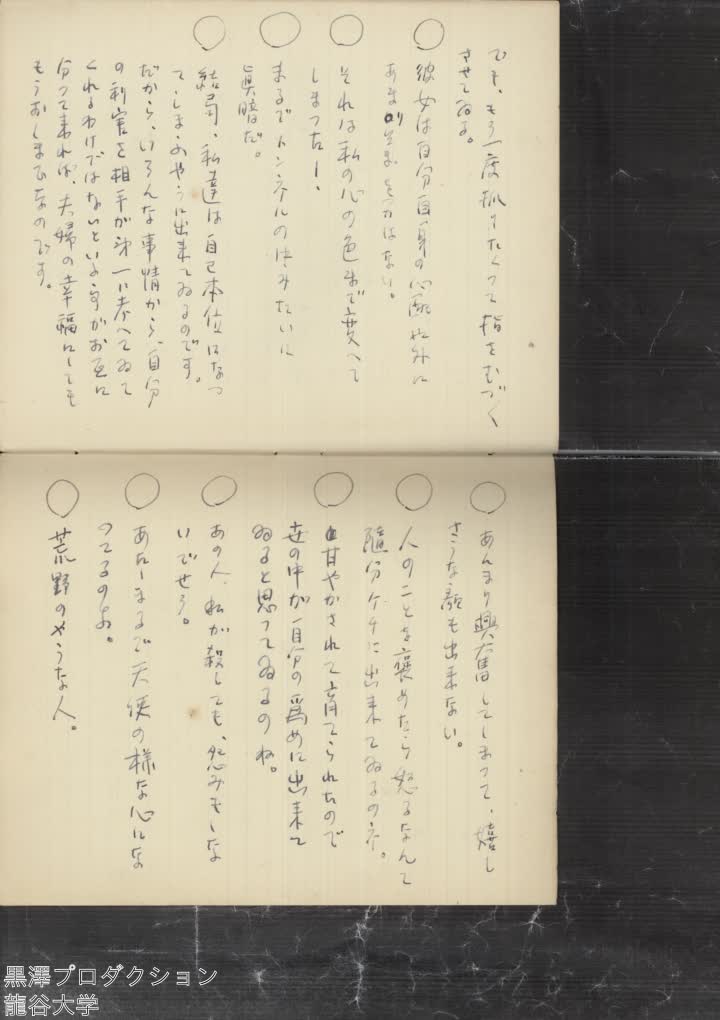 でも、もう一度抓りたくって指をむづく
させてゐる。
○彼女は自分自身の心配以外に
あまり
それは私の心の色まで変へて
しまつたー、
○まるでトンネルの中みたいに
真暗だ。
○結局、私達は自己本位になつ
て、しまふやうに出来てゐるのです。
だから、いろんな事情から、自分
の利害を相手が第一に考へてゐて
くれるわけではないといふ事がお互に
分つて来れば、夫婦の幸福にしても
もうおしまひなのです。
○あんまり興奮してしまつて、嬉し
さうな顔も出来ない。
○人のことを褒めたら怒るなんて
随分ケチに出来てゐるのネ。
○甘やかされて育てられたので
世の中が自分の為めに出来て
ゐると思つてゐるのね。
○あの人、私が殺しても、怨みもしな
いでせう。
○あたしまるで天使の様な心にな
つてるのよ。
○荒野のやうな人。
黒澤プロダクション
龍谷大学